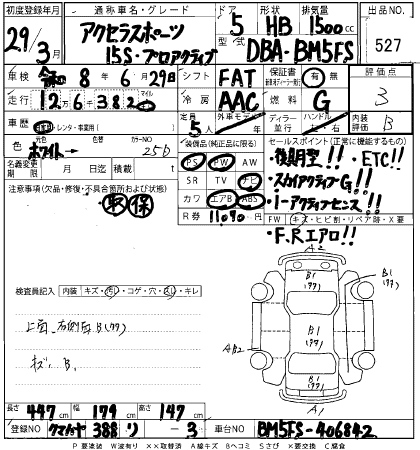 初度登録年月 通称車名・グレード ドア 形状 排気量 出品NO.
29年3月 アクセラスポーツ 5 HB 1500cc 527
15S・プロアクティブ 型式 DBA・BM5FS
車検 令和 8年 6月 29日 シフト FAT 保証書 有 無 評価点
走行 12万6千382 マイル キロ 冷房 AAC 燃料 G 3
車歴 自家用・レンタ・事業用 定員 5人 外車モデル ディーラー 並行 ハンドル 左 右 内装評価 B
色 元色 ホワイト 色替 カラーNO 25D 装備品(純正品に限る) セールスポイント(正常に機能するもの)
名義変更期限 月 日迄 積載 t PS PW AW ・後期型!! ・ETC!!
注意事項(欠品・修復・不具合箇所および状態) SR TV ナビ ・スカイアクティブG!!
取 保 カワ エアB ABS ・i-アクティブセンス!!
R券 11090 FW キズ・ヒビ割・リペア跡・X要
・F.Rエアロ!!
A2
検査員記入 内装 キズ・汚レ・コゲ・穴・スレ・キレ
B1
(ウラ)
B1
(ウラ)
上面、右側面B(ウラ)
B1
(ウラ)
AB2
キズ、B、
A1
長さ 447cm 幅 179cm 高さ 147cm
登録NO クマモト 388 リ -3 車台NO BM5FS-406842
P要塗装 W波有り ××取替済 A線キズ Bヘコミ Sさび ×要交換 C腐食